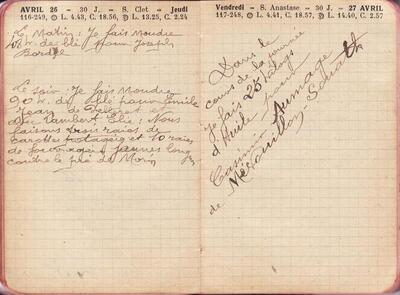 AVRIL 26 - 30 J. - S. Clet - Jeudi
116-249, ☉ L. 4.43, C. 18.56, ☽ L. 13.25, C. 2.24
L. Matin : Je fais Moudre
de blé pour Joseph
Le soir : Je fais Moudre
90 K. de blé pour Emile
Jean de et
Lambert Elie : Nous
faisons trois raies de
Carottes potagères et 10 raies
de jaunes long
contre le pré de Morin
Vendredi - S. Anastase - 30 J. - 27 AVRIL
117-248, ☉ L. 4.41, C. 18.57, ☽ L. 14.40, C. 2.57
Dans le
cours de la journée
je fais 25
d'Huile pour
Casimir Aumage
de Mévouillon-